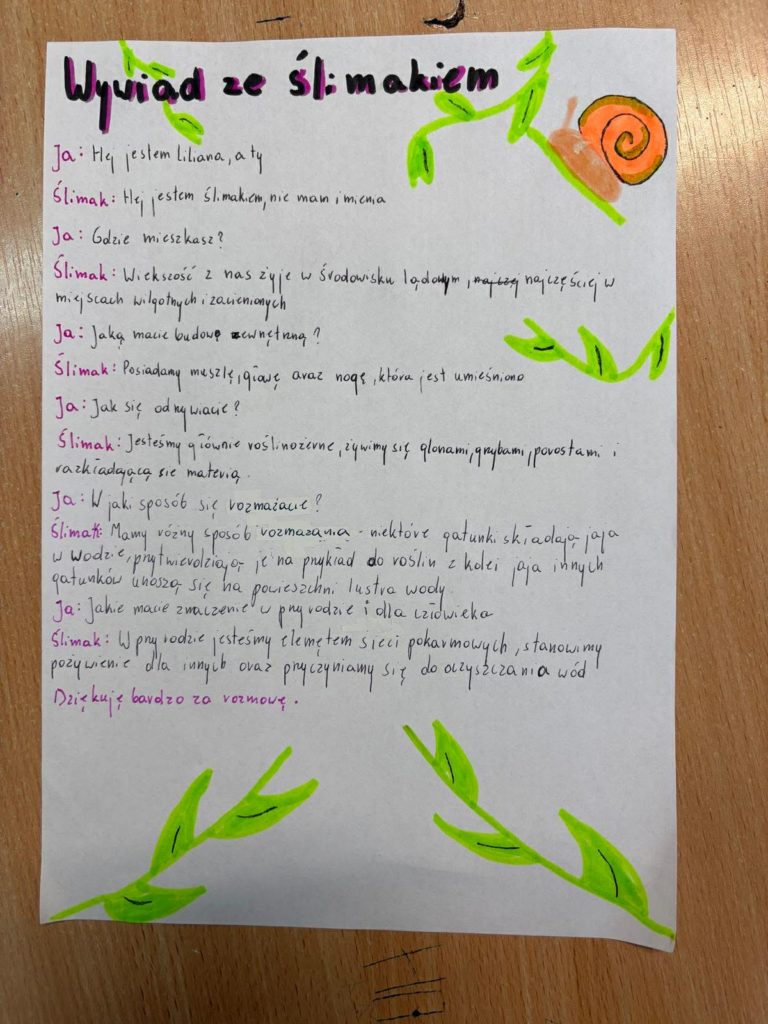 Wywiad ze ślimakiem
Ja: Hej jestem liliana, a ty
Ślimak: Hej jestem ślimakiem, nie mam imienia
Ja: Gdzie mieszkasz?
Ślimak: Wiekszość z nas żyje w środowisku lądowym, najczęściej w
miejscach wilgotnych i zacienionych
Ja: Jaką macie budowę zewnętrzną?
Ślimak: Posiadamy muszlę, głowę oraz nogę, która jest umieśniona
Ja: Jak się odrzywiacie?
Ślimak: Jesteśmy głównie roślinożerne, żywimy się glonami, grzybami, porostami i
rozkładającą sie materią.
Ja: W jaki sposób się rozmażacie?
Ślimak: Mamy różny sposób rozmażania - niektóre gatunki składają jaja
w wodzie, przytwierdziają je na przykład do roślin z kolei jaja innych
gatunków unoszą się na powieszchni lustra wody.
Ja: Jakie macie znaczenie w przyrodzie i dla człowieka
Ślimak: W przyrodzie jesteśmy elemętem sieci pokarmowych, stanowimy
pożywienie dla innych oraz przyczyniamy się do oczyszczania wód
Dziękuję bardzo za rozmowę.